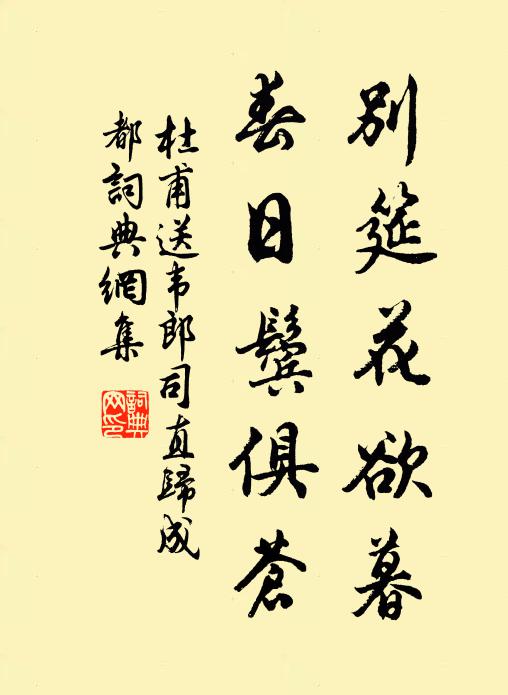 别筵花欲暮
春日鬓俱蒼
杜甫送韦郎司直歸成
都詞典網集
詞典网印